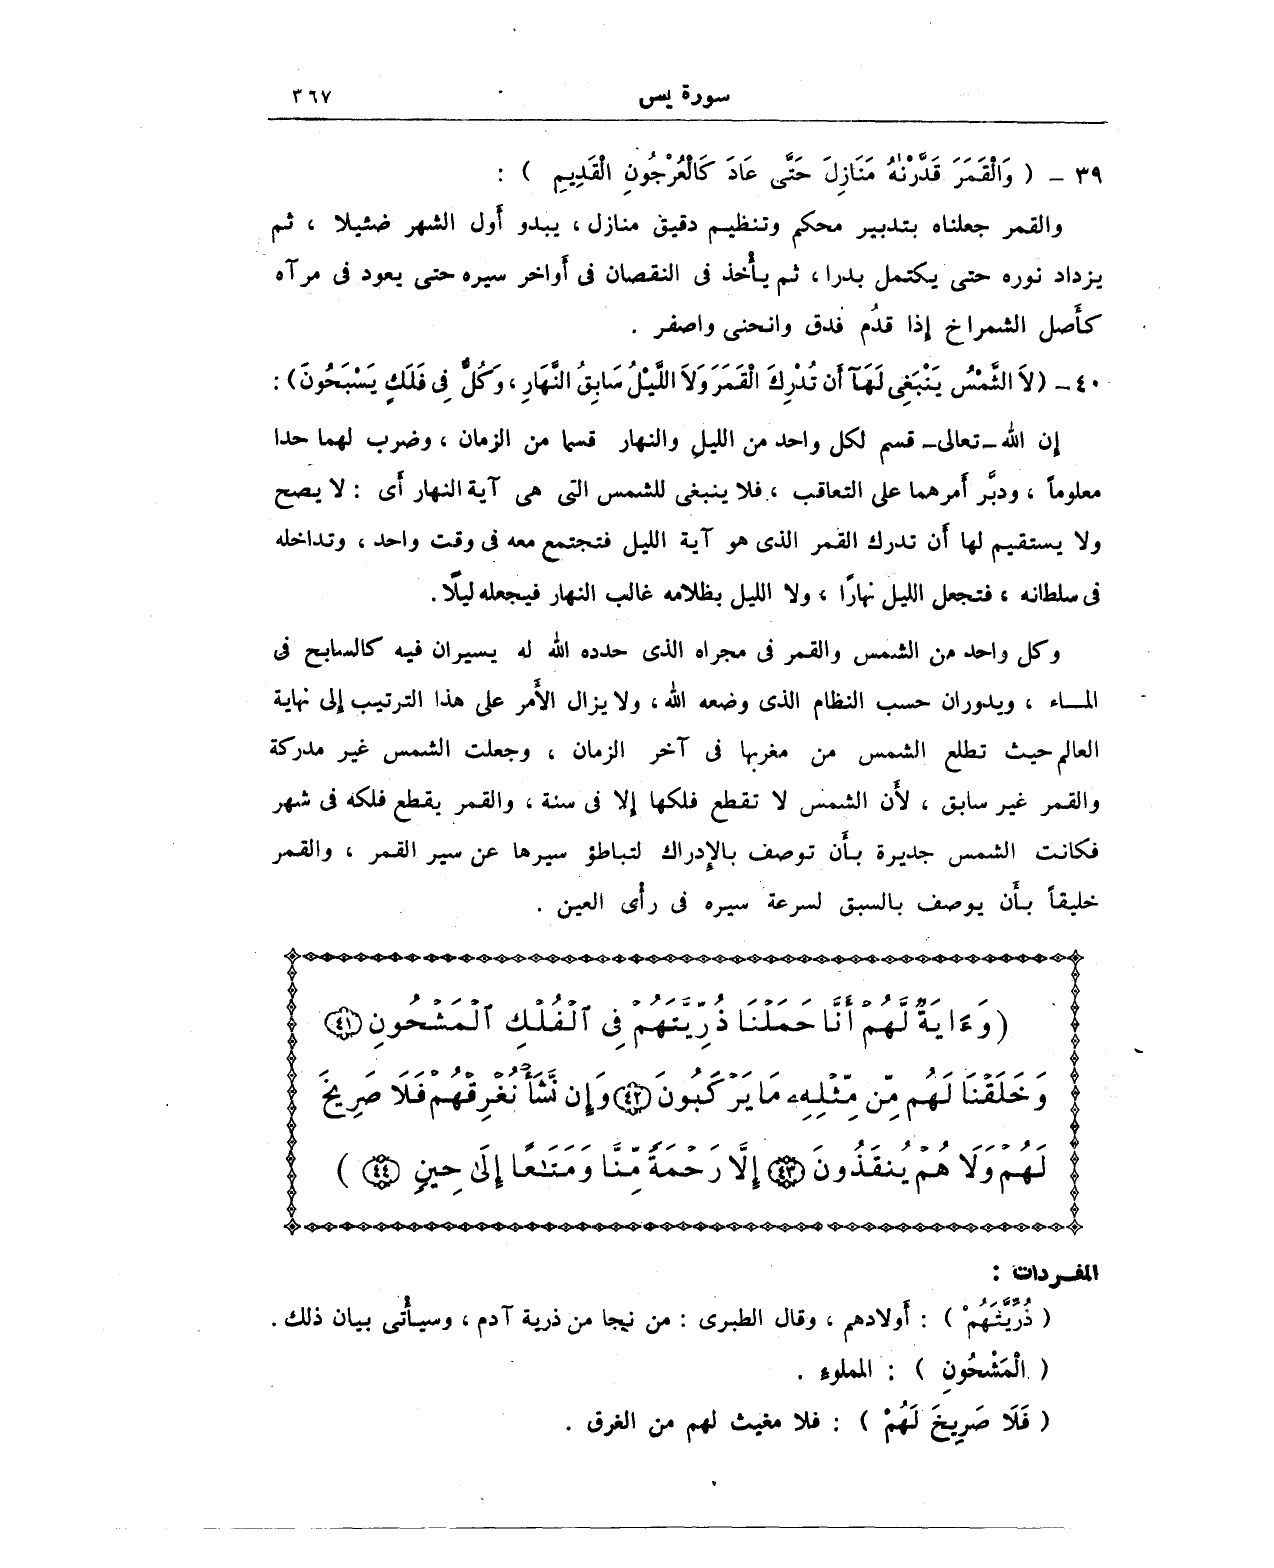 سورة يس ٣٦٧
٣٩ - ( وَالْقَمَرَ قَدَّرْنٰهُ مَنَازِلَ حَتَّى عَادَ كَالْعُرْجُونِ الْقَدِيمِ ) :
والقمر جعلناه بتدبير محكم وتنظيم دقيق منازل ، يبدو أول الشهر ضئيلا ، ثم
يزداد نوره حتى يكتمل بدرا ، ثم يأْخذ فى النقصان فى أواخر سيره حتى يعود فى مرآه
كأَصل الشمراخ إذا قدُم فدق وانحنى واصفر .
٤٠ - (لاَ الشَّمْسُ يَنْبَغِى لَهَآ أَن تُدْرِكَ الْقَمَرَ وَلاَ اللَّيْلُ سَابِقُ النَّهَارِ ، وَكُلٌّ فِى فَلَكٍ يَسْبَحُونَ) :
إن الله -تعالى- قسم لكل واحد من الليل والنهار قسما من الزمان ، وضرب لهما حدا
معلوماً ، ودبَّر أمرهما على التعاقب ، فلا ينبغى للشمس التى هى آية النهار أى : لا يصح
ولا يستقيم لها أن تدرك القمر الذى هو آية الليل فتجتمع معه فى وقت واحد ، وتداخله
فى سلطانه ، فتجعل الليل نهارًا ، ولا الليل بظلامه غالب النهار فيجعله ليلًا .
وكل واحد من الشمس والقمر فى مجراه الذى حدده الله له يسيران فيه كالسابح فى
المـــاء ، ويدوران حسب النظام الذى وضعه الله ، ولا يزال الأَمر على هذا الترتيب إلى نهاية
العالم حيث تطلع الشمس من مغربها فى آخر الزمان ، وجعلت الشمس غير مدركة
والقمر غير سابق ، لأَن الشمس لا تقطع فلكها إلا فى سنة ، والقمر يقطع فلكه فى شهر
فكانت الشمس جديرة بأَن توصف بالإدراك لتباطؤ سيرها عن سير القمر ، والقمر
خليقاً بأَن يوصف بالسبق لسرعة سيره فى رأْى العين .
(وَءَايَةٌ لَّهُمْ أَنَّا حَمَلْنَا ذُرِّيَّتَهُمْ فِى ٱلْفُلْكِ ٱلْمَشْحُونِ ٤١
وَخَلَقْنَا لَهُم مِّن مِّثْلِهِۦ مَا يَرْكَبُونَ ٤٢ وَإِن نَّشَأْ نُغْرِقْهُمْ فَلَا صَرِيخَ
لَهُمْ وَلَا هُمْ يُنقَذُونَ ٤٣ إِلَّا رَحْمَةً مِّنَّا وَمَتَـٰعًا إِلَىٰ حِينٍ ٤٤ )
المفـردات :
( ذُرِّيَّتَهُمْ ) : أولادهم ، وقال الطبرى : من نجا من ذرية آدم ، وسيأْتى بيان ذلك .
( الْمَشْحُونِ ) : المملوء .
( فَلَا صَرِيخَ لَهُمْ ) : فلا مغيث لهم من الغرق .